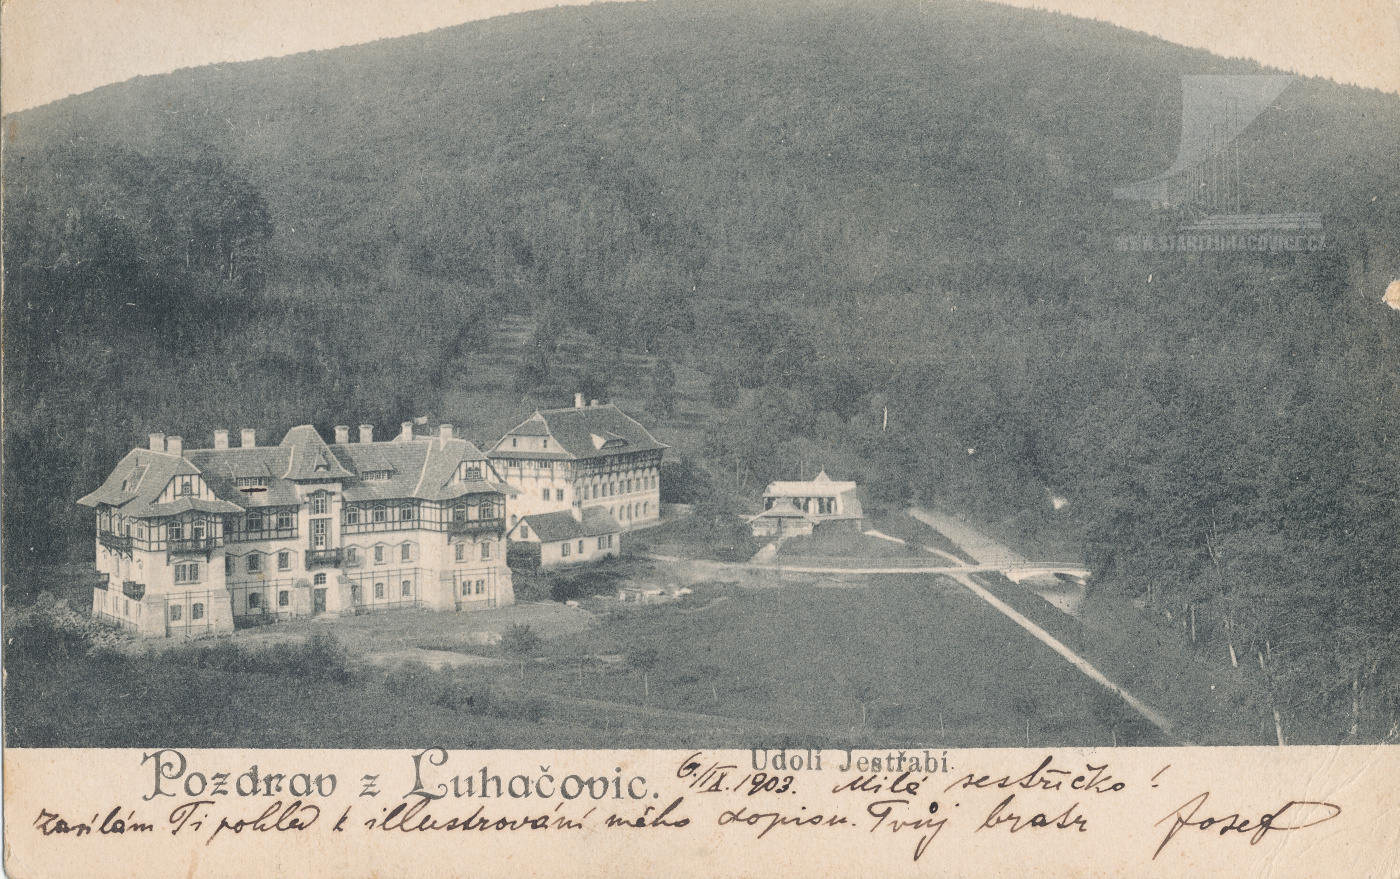 WWW.STARELUHACOVICE.CZ
Údolí Jestřabí.
Pozdrav z Luhačovic. 6./IX. 1903. Milá sestřičko!
Zasílám Ti pohled k illustrování mého dopisu. Tvůj bratr Josef